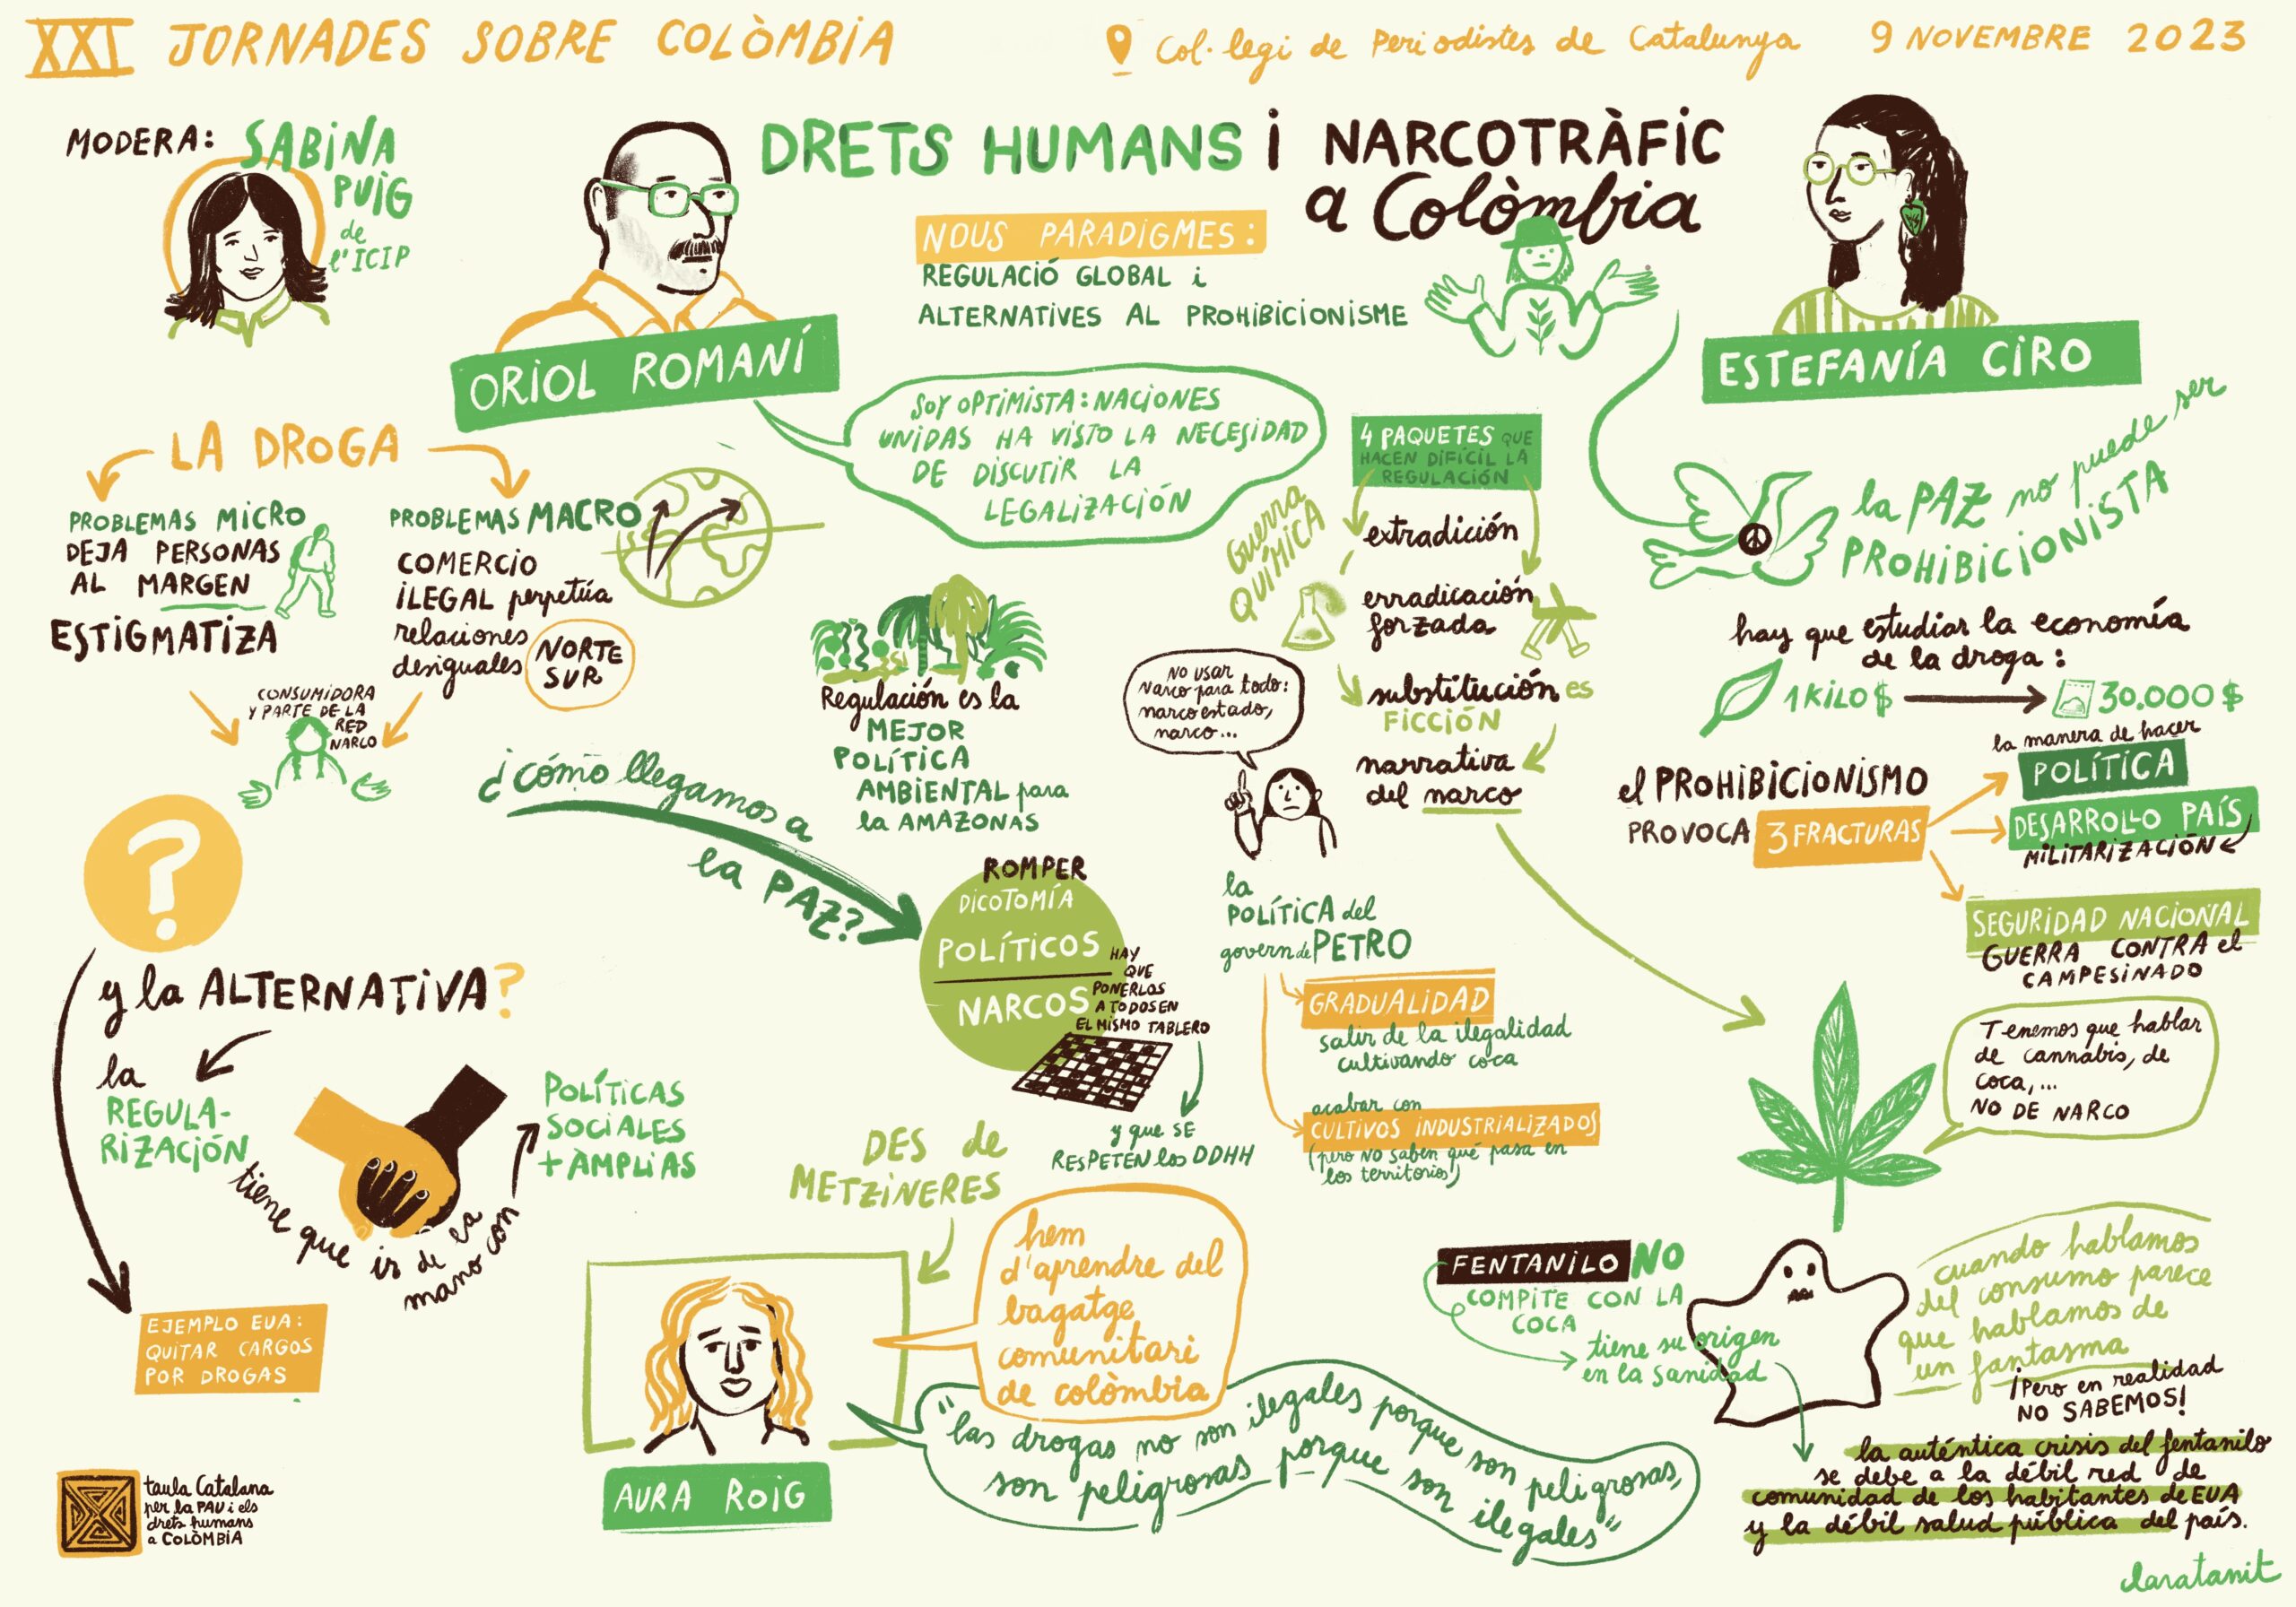 XXI JORNADES SOBRE COLÒMBIA
Col·legi de Periodistes de Catalunya
9 NOVEMBRE 2023
MODERA: SABINA
PUIG
de
l'ICIP
DRETS HUMANS i NARCOTRÀFIC
a Colòmbia
NOUS PARADIGMES:
REGULACIÓ GLOBAL i
ALTERNATIVES AL PROHIBICIONISME
ORIOL ROMANÍ
SOY OPTIMISTA: NACIONES
UNIDAS HA VISTO LA NECESIDAD
DE DISCUTIR LA
LEGALIZACIÓN
LA DROGA
PROBLEMAS MICRO
DEJA PERSONAS
AL MARGEN
ESTIGMATIZA
PROBLEMAS MACRO
COMERCIO
ILEGAL perpetúa
relaciones
desiguales
NORTE
SUR
CONSUMIDORA
Y PARTE DE LA
RED
NARCO
?
y la ALTERNATIVA?
la
REGULA-
RIZACIÓN
tiene que ir de la
mano con
POLÍTICAS
SOCIALES
+ ÀMPLIAS
EJEMPLO EUA:
QUITAR CARGOS
POR DROGAS
Regulación es la
MEJOR
POLÍTICA
AMBIENTAL para
la AMAZONAS
¿cómo llegamos a
la PAZ?
ROMPER
DICOTOMÍA
POLÍTICOS
NARCOS
HAY
QUE
PONERLOS
A TODOS EN
EL MISMO TABLERO
y que SE
RESPETEN los DDHH
ESTEFANÍA CIRO
4 PAQUETES QUE
HACEN DIFÍCIL LA
REGULACIÓN
Guerra
QUÍMICA
extradición
erradicación
forzada
substitución es
FICCIÓN
narrativa
del narco
NO USAR
Narco para todo:
narcoestado,
narco...
la
POLÍTICA del
govern de PETRO
GRADUALIDAD
salir de la ilegalidad
cultivando coca
acabar con
CULTIVOS INDUSTRIALIZADOS
(pero NO saben qué pasa en
los territorios)
la PAZ no puede ser
PROHIBICIONISTA
hay que estudiar la economía
de la droga:
1 KILO $
30.000 $
el PROHIBICIONISMO
PROVOCA 3 FRACTURAS
la manera de hacer
POLÍTICA
DESARROLLO PAÍS
MILITARIZACIÓN
SEGURIDAD NACIONAL
GUERRA CONTRA el
CAMPESINADO
Tenemos que hablar
de cannabis, de
coca,...
NO DE NARCO
FENTANILO NO
COMPITE CON LA
COCA
tiene su origen
en la sanidad
cuando hablamos
del consumo parece
que hablamos de
un fantasma
¡Pero en realidad
NO SABEMOS!
la auténtica crisis del fentanilo
se debe a la débil red de
comunidad de los habitantes de EUA
y la débil salud pública del país.
DES de
METZINERES
AURA ROIG
hem
d'aprendre del
bagatge
comunitari
de colòmbia
"las drogas no son ilegales porque son peligrosas,
son peligrosas porque son ilegales"
taula Catalana
per la PAU i els
drets humans
a COLÒMBIA
claratanit